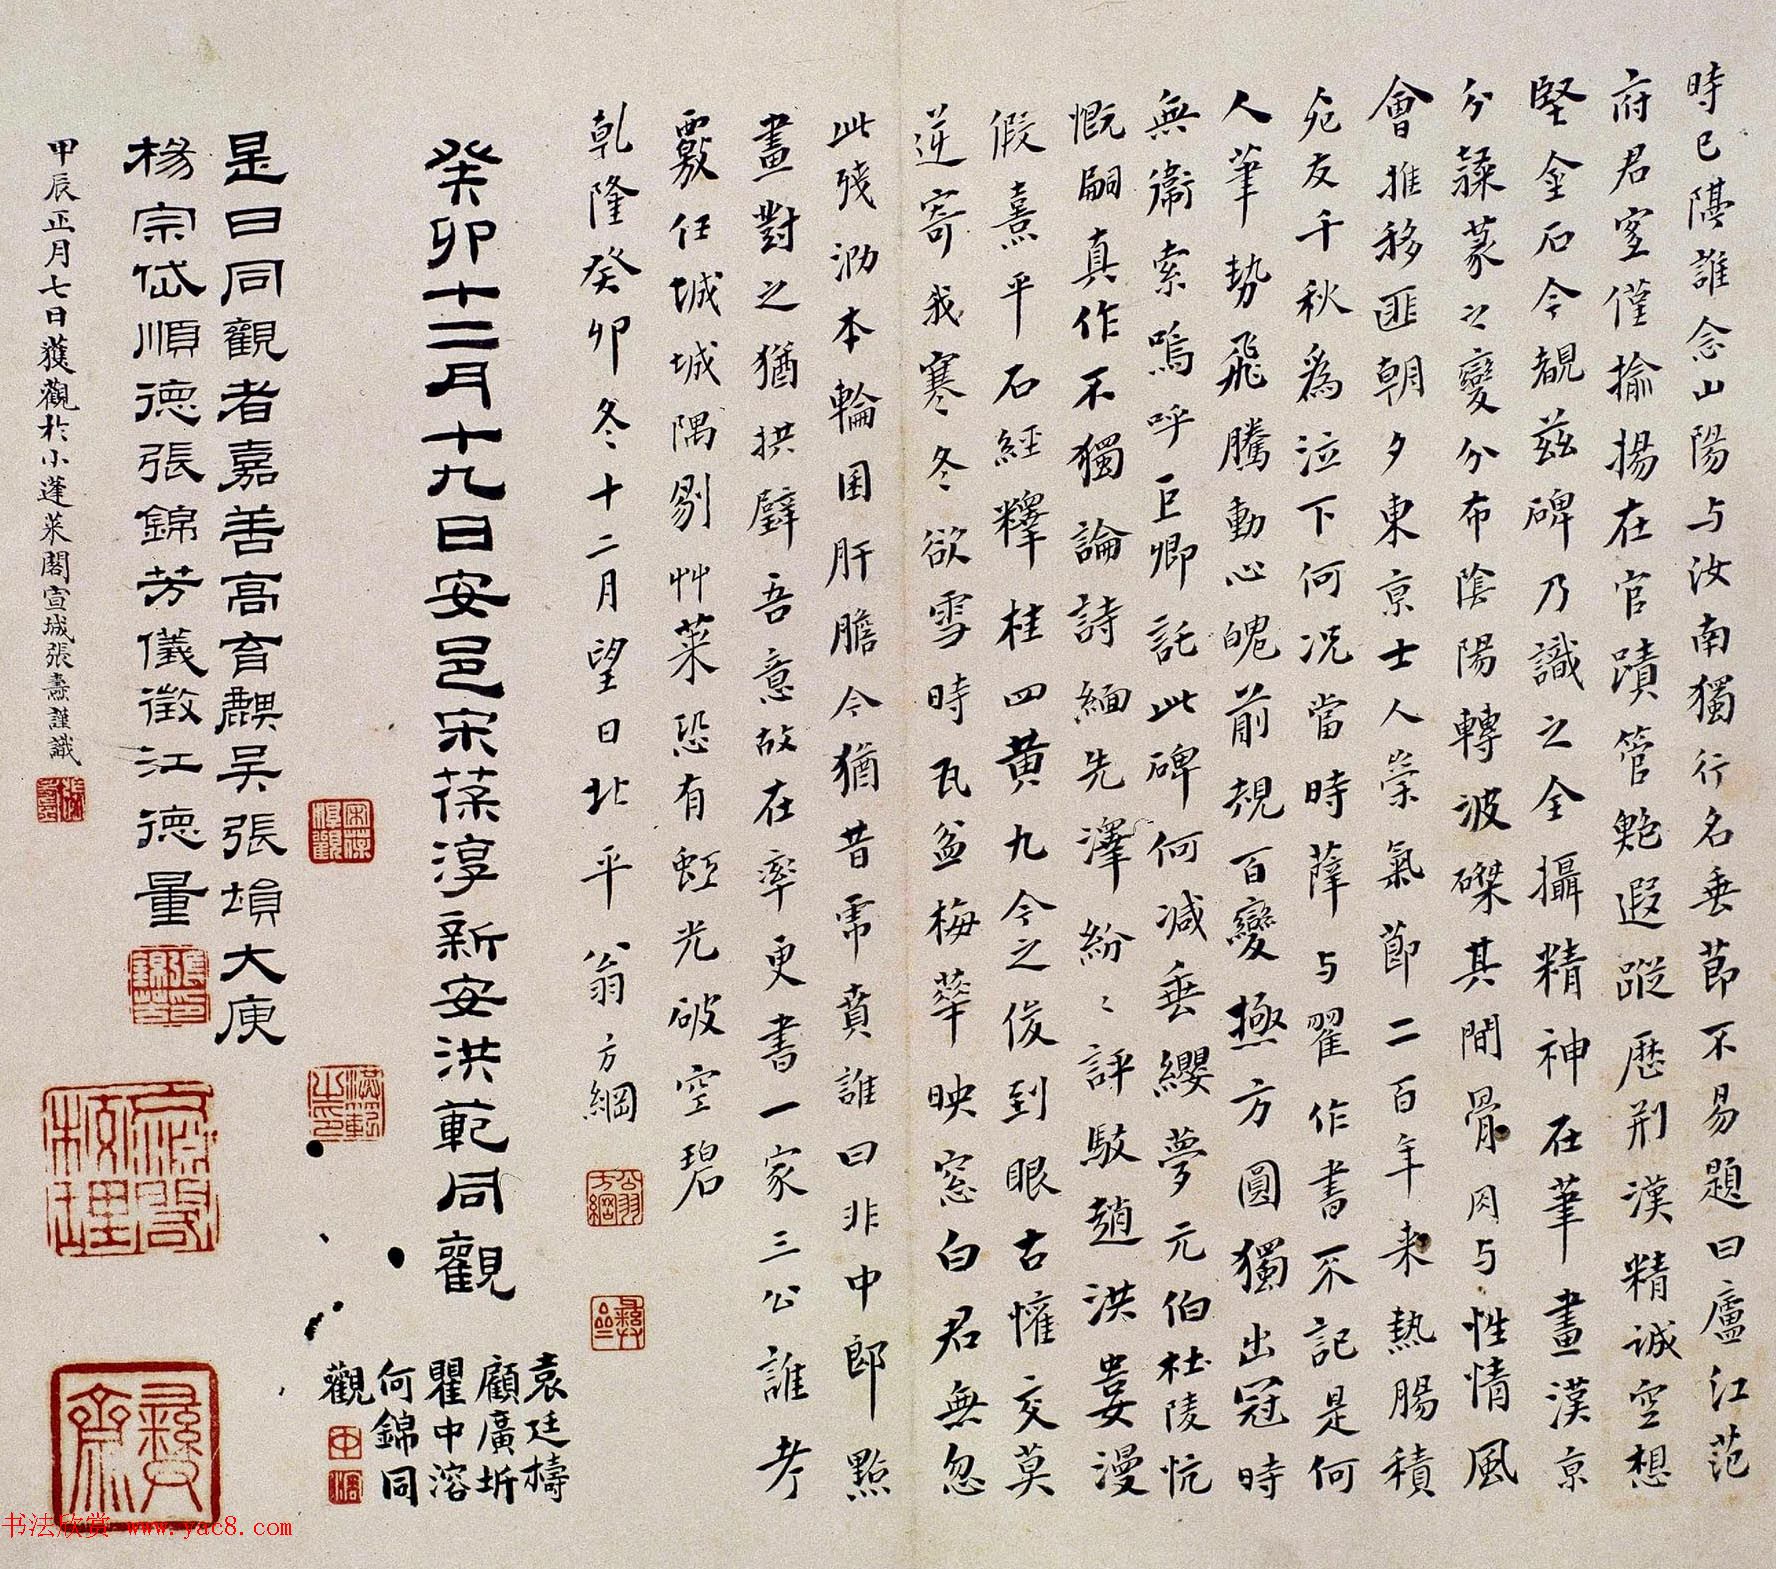 時已隔誰念山陽与汝南獨行名垂節不易題曰廬江范
府君室僅揄揚在官蹟管鮑遐蹤歷荆漢精誠空想
堅金石今覩茲碑乃識之全攝精神在筆畫漢京
分隸篆之變分布陰陽轉波磔其間骨肉与性情風
會推移匪朝夕東京士人崇氣節二百年来熱腸積
死友千秋爲泣下何況當時薛与翟作書不記是何
人筆勢飛騰動心魄前規百變極方圓獨出冠時
無衞索嗚呼巨卿託此碑何減垂纓夢元伯杜陵忼
慨嗣真作不獨論詩緬先澤紛〻評駁趙洪婁漫
假熹平石經釋桂四黄九今之俊到眼古懽交莫
逆寄我寒冬欲雪時瓦盆梅華映窓白君無忽
此殘泐本輪囷肝膽今猶昔虎賁誰曰非中郎點
畫對之猶拱璧吾意故在率更書一家三公誰考
覈任城城隅剔艸萊恐有虹光破空碧
乾隆癸卯冬十二月望日北平翁方綱
翁方綱
癸卯十二月十九日安邑宋葆淳新安洪範同觀
宋葆淳觀
洪範之印
袁廷檮
顧廣圻
瞿中溶
何錦同
觀
是日同觀者嘉善高育麒吴張塤大庾
楊宗岱順德張錦芳儀徵江德量
張錦芳印
甲辰正月七日獲觀於小蓬萊閣宣城張燾謹識
彝齋
书法欣赏 www.yac8.com